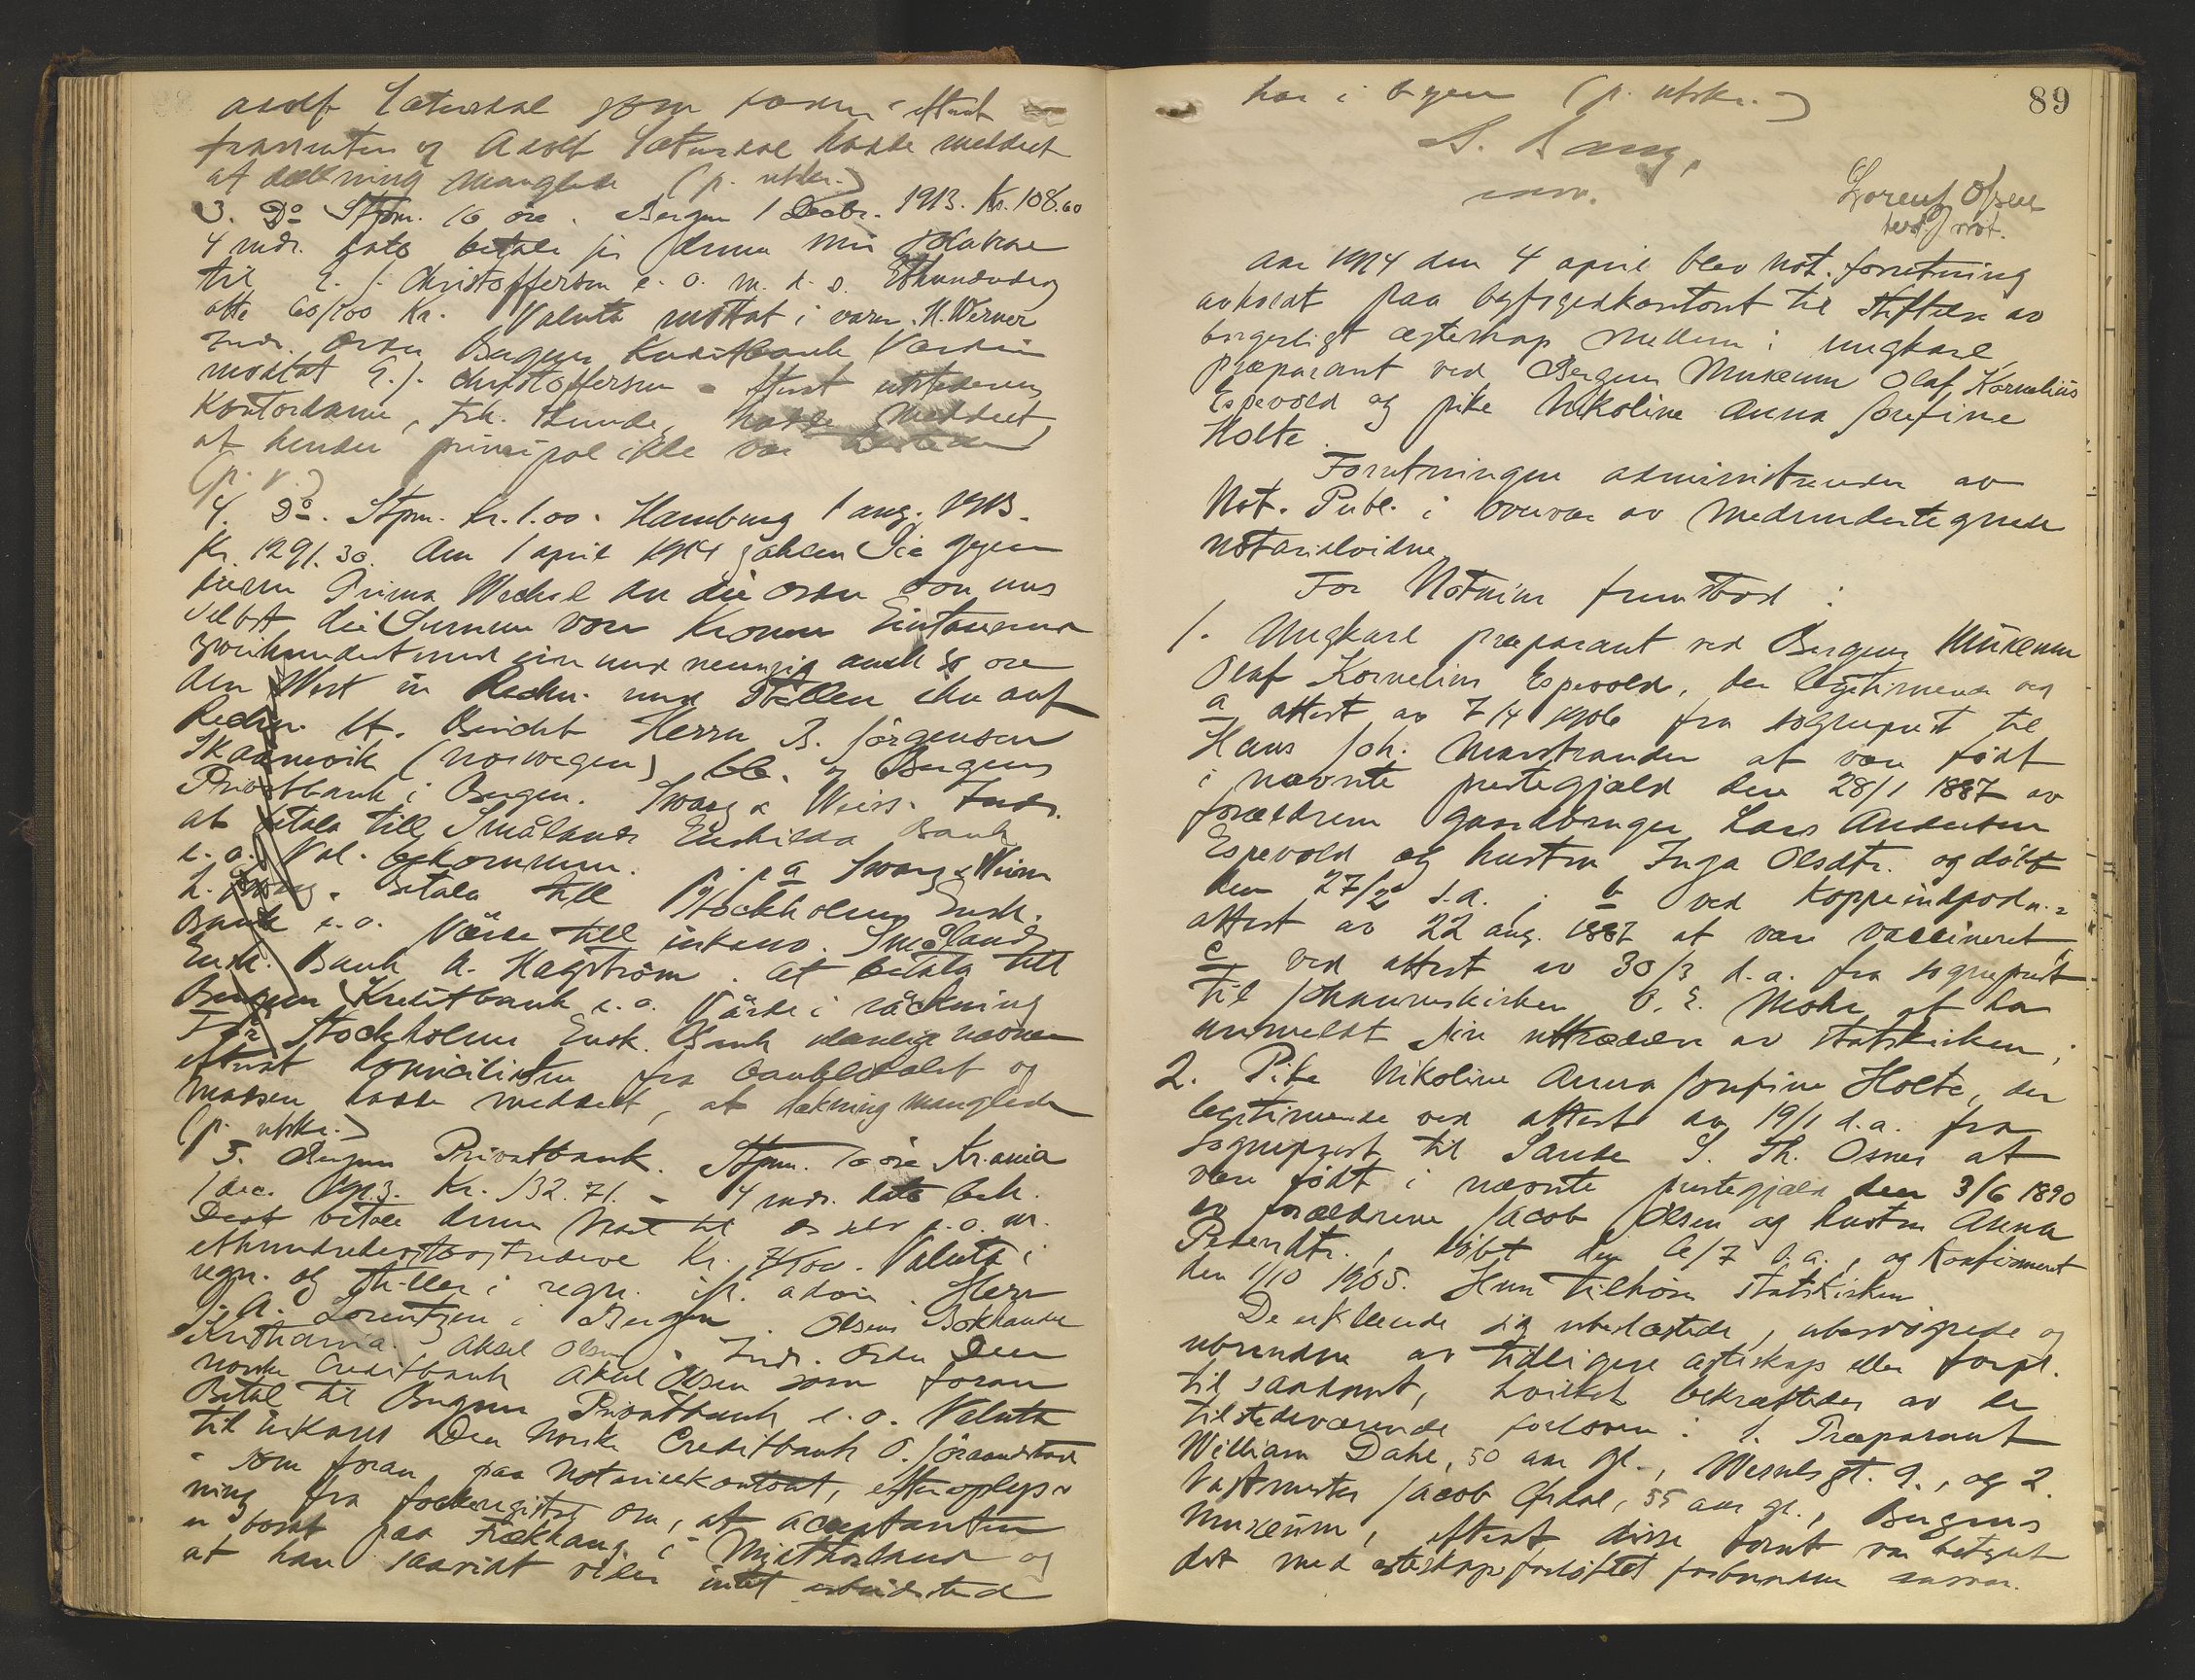 Adolf Sætersdal som foran - efterat
trassenten og Adolf Sætersdal hadde meddelt
at dækning manglede (p. utskr.)
3. Do Stpm. 10 øre. Bergen 1 Decbr. 1913. Kr. 108.60
4 mdr. dato betale jeg denne min solavæxel
til E. J. Christoffersen e. o. m. d. s. Ethundredeog
otte 60/100 Kr. Valuta mottat i varer. H. Werner
Inds. Ordre Bergens Kreditbank Værdien
modtat E. J. Christoffersen - efterat utstederens
Kontordame, Frk. Lunde, hadde meddelt,
at hendes principal ikke var tilstede
(p. v.)
4. Do. Stpm. kr. 1.00. Hamburg 1 aug. 1913.
Kr. 1291.30. Am 1 april 1914 zahlen Sie gegen
diesen Prima Wechsel an die Order von uns
selbst die Summe von Kronen Eintausend
zweihundertund ein und neunzig auch 30 øre
den Wert in Rechn. und stellen ihn auf
Rechn. lt. Bericht Herrn B. Jörgensen
Skaanevik (Norwegen) bb. og Bergens
Privatbank i Bergen. Swarz & Weiss. Inds.
at betala till Smålands Enskilda Bank
e. o. Val. bekommen. p. pa Swarz & Weiss
L. Swarz. Betala till Stockholms Ensk.
Bank e. o. Värde till inkasso. Smålands
Ensk. Bank A. Hagström. at betala till
Bergens Kreditbank e. o. Värde i räckning
För Stockholms Ensk. Bank ulæselige navne
efterat domiciliaten fra banklokalet og
massen hadde meddelt, at dækning manglede
(p. utskr.)
5. Bergens Privatbank. Stpm. 10 øre Kr.ania
1 dec. 1913. Kr. 132.71. - 4 mdr. dato beh.
Dest betale denne Vexel til os selv e. o. m.
ethundredeogtoogtredeve Kr. 71/100. Valuta i
regn. og stilles i regn. ifl. advis. Herr
J. A. Lorentzen i Bergen. Olsens Bokhandel
Kristiania. Aksel Olsen. Inds. Ordre Den
norske Creditbank Aksel Olsen som foran
Betal til Bergens Privatbank e. o. Valuta
til inkasso Den Norske Creditbank O.
- som foran, paa Notarialkontoret, efter oplys-
ning fra folkeregistret om, at acceptanten
er bosat paa Fækhaug i Midthordland og
at han saavidt vides intet arbeidssted
har i byen (p. utskr.)
89
S. Bang,
Lorentz Olsen
test. not.
Aar 1914 den 4 april blev Not. forretning
avholdt paa byfogedkontoret til stiftelse av
borgerligt egteskap mellem: ungkarl
præparant ved Bergens Museum Olaf Kornelius
Espevold og pike Nikoline Anna Josefine
Holte.
Forretningen administreredes av
Not. Publ. i overvær av medundertegnede
notarialvidne
For Notarius fremstod:
1. Ungkarl præparant ved Bergens Museum
Olaf Kornelius Espevold, der legitimerede ved
a attest av 7/4 1906 fra sogneprest til
Hans Joh. Marstrander at være født
i nævnte prestegjæld den 28/1 1887 av
forældrene gaardbruger Lars Andersen
Espevold og hustru Inga Olsdtr. og døbt
den 27/2 s.a.; b ved koppeindpodn.-
attest av 22 aug. 1887 at være vaccineret,
c ved attest av 30/3 d.a. fra sogneprest
til Johanneskirken O. E. Mohn at ha
anmeldt sin uttræden av statskirken;
2. Pike Nikoline Anna Josefine Holte, der
legitimerede ved attest av 19/1 d.a. fra
sogneprest til Sande S. Th. Osnes at
være født i nævnte prestegjæld den 3/6 1890
av forældrene Jacob Olsen og hustru Anna
Pedersdtr., døbt den 6/7 s.a., og konfirmert
den 1/10 1905. Hun tilhører statskirken
De erklærede sig ubeslægtede, ubesvogrede og
ubundne av tidligere egteskap eller forpl.
til saadant, hvilket bekræftedes av de
tilstedeværende forlovere: 1. Præparant
William Dahl, 50 aar gl., Wesselsgt. 9., og 2.
Vagtmester Jacob Ørdal, 55 aar gl., Bergens
Museum, efterat disse forut var betydet
det med egteskapsforløftet forbundne ansvar.